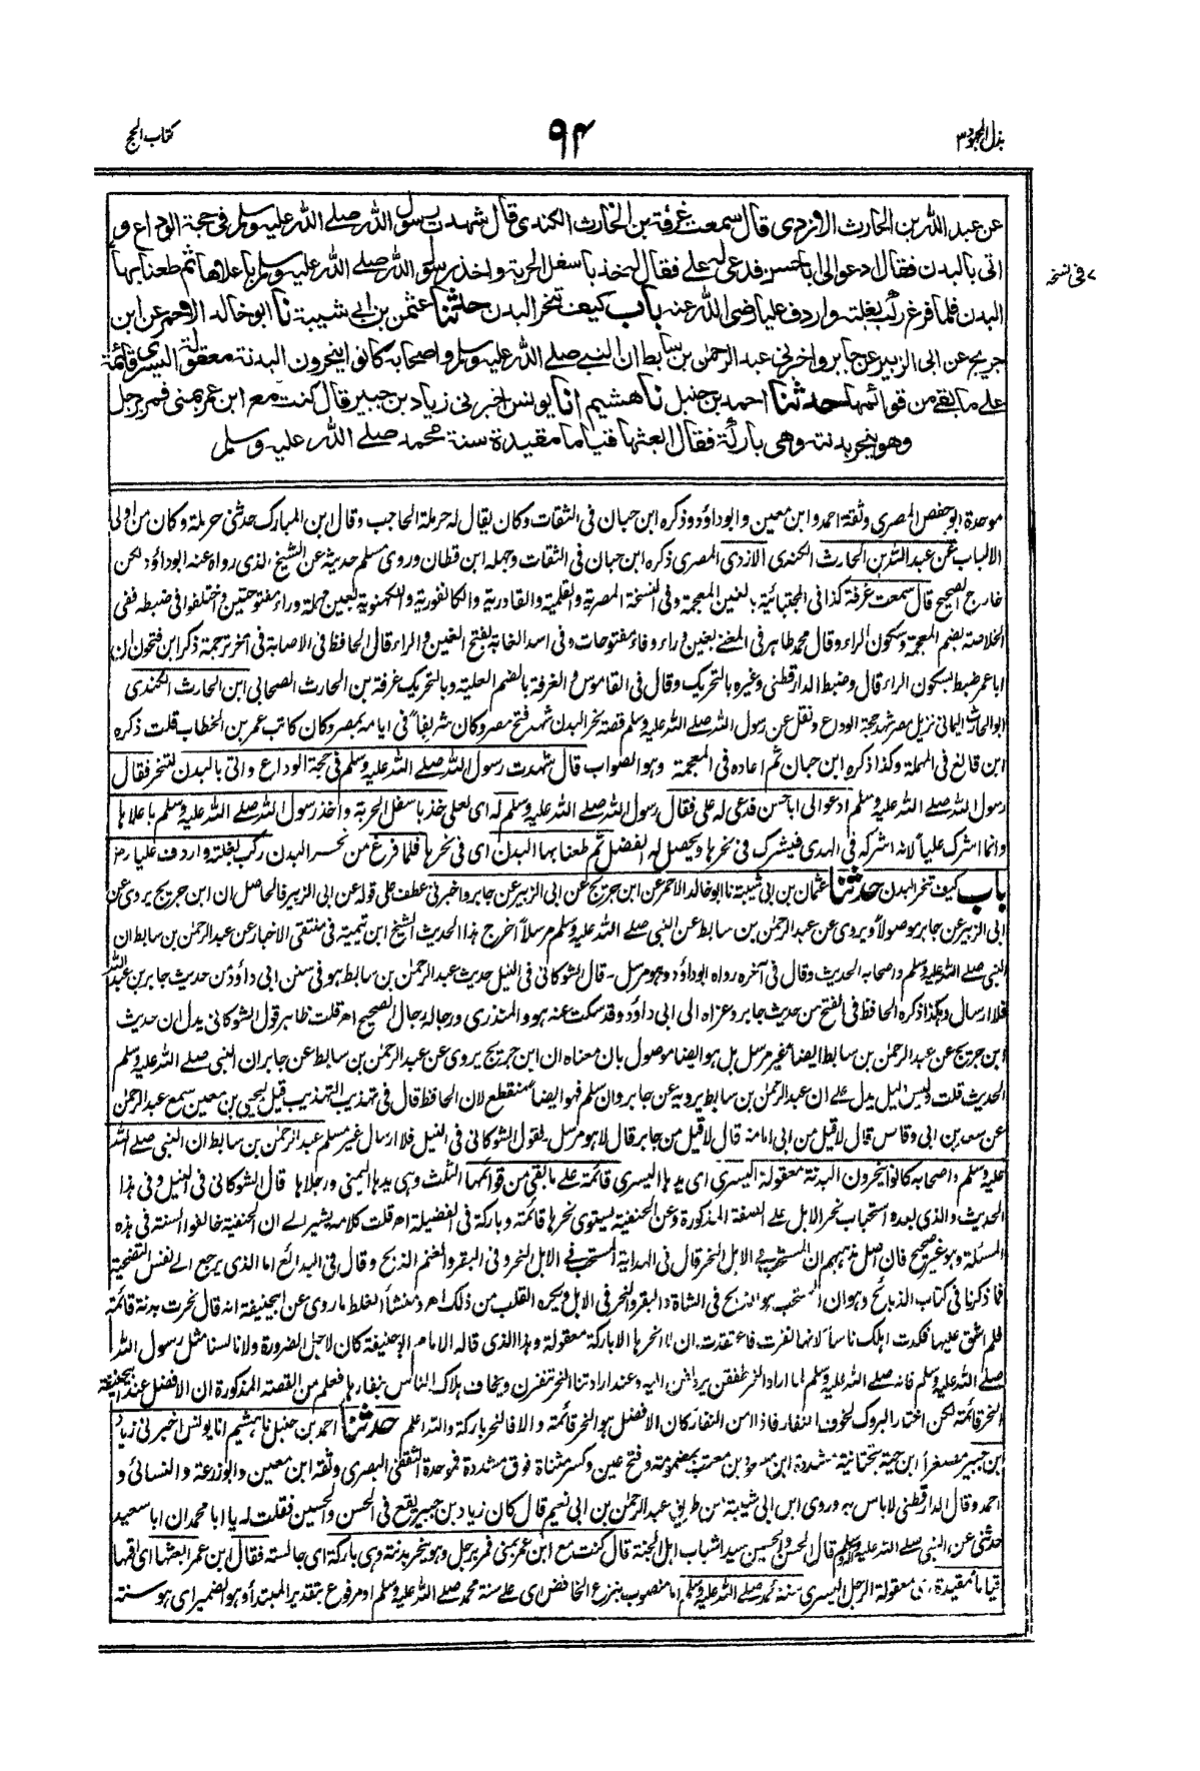 بذل المجهود ٣
٩٤
كتاب الحج
عن عبد الله بن الحارث الازدى قال سمعت غرفة بن الحارث الكندى قال شهدت رسول الله صلى الله عليه وسلم فى حجة الوداع و
اتى بالبدن فقال ادعوا لى ابا حسن فدعى له على فقال له خذ باسفل الحربة واخذ رسول الله صلى الله عليه وسلم باعلاها ثم طعنا بها
٧ فى نسخة
البدن فلما فرغ ركب بغلته واردف عليا رضى الله عنه باب كيف تنحر البدن حدثنا عثمن بن ابى شيبة نا ابو خالد الاحمر عن ابن
جريج عن ابى الزبير عن جابر واخبرنى عبد الرحمٰن بن سابط ان النبى صلى الله عليه وسلم واصحابه كانوا ينحرون البدنة معقولة اليسرى قائمة
على ما بقى من قوائمها حدثنا احمد بن حنبل نا هشيم انا يونس اخبرنى زياد بن جبير قال كنت مع ابن عمر بمنى فمر برجل
وهو ينحر بدنته وهى باركة فقال ابعثها قياما مقيدة سنة محمد صلى الله عليه وسلم
موحدة ابو حفص المصرى وثقة احمد وابن معين وابو داؤد وذكره ابن حبان فى الثقات وكان يقال له حرملة الحاجب وقال ابن المبارك حدثنى حرملة وكان من اولى
الالباب عن عبد الله بن الحارث الكندى الازدى المصرى ذكره ابن حبان فى الثقات وجهله ابن قطان وروى مسلم حديثه عن الشيخ الذى رواه عنه ابو داؤد لكن
خارج الصحيح قال سمعت غرفة كذا فى المجتبائية بالغين المعجمة وفى النسخة المصرية والقلمية والقادرية والكانفورية واللكهنوية بعين مهملة وراء مفتوحتين واختلفوا فى ضبطه ففى
الخلاصة بضم المعجمة وسكون الراء وقال محمد طاهر فى المغنى بغين وراء وفاء مفتوحات وفى اسد الغابة بفتح الغين والراء قال الحافظ فى الاصابة فى آخر ترجمة ذكر ابن فتحون ان
ابا عمر ضبط بسكون الراء قال وضبط الدارقطنى وغيره بالتحريك وقال فى القاموس والغرفة بالضم العلية وبالتحريك غرفة بن الحارث الصحابى ابن الحارث الكندى
ابو الحارث اليمانى نزيل مصر شهد حجة الوداع ونقل عن رسول الله صلى الله عليه وسلم قصة نحر البدن شهد فتح مصر وكان شريفاً فى ايامه بمصر وكان كاتب عمر بن الخطاب قلت ذكره
ابن قانع فى المهملة وكذا ذكره ابن حبان ثم اعاده فى المعجمة وهو الصواب قال شهدت رسول الله صلى الله عليه وسلم فى حجة الوداع واتى بالبدن لتنحر فقال
رسول الله صلى الله عليه وسلم ادعوا لى ابا حسن فدعى له على فقال رسول الله صلى الله عليه وسلم له اى لعلى خذ باسفل الحربة واخذ رسول الله صلى الله عليه وسلم باعلاها
وانما اشرك علياً لانه اشركه فى الهدى فيشرك فى نحرها ويحصل له الفضل ثم طعنا بها البدن اى فى نحرها فلما فرغ من نحر البدن ركب بغلته واردف عليا رضـ
باب كيف تنحر البدن حدثنا عثمان بن ابى شيبة نا ابو خالد الاحمر عن ابن جريج عن ابى الزبير عن جابر واخبرنى عطف على قوله عن ابى الزبير فالحاصل ان ابن جريج يروى عن
ابى الزبير عن جابر موصولاً ويروى عن عبد الرحمٰن بن سابط عن النبى صلى الله عليه وسلم مرسلاً اخرج هذا الحديث الشيخ ابن تيمية فى منتقى الاخبار عن عبد الرحمٰن بن سابط ان
النبى صلى الله عليه وسلم واصحابه الحديث وقال فى آخره رواه ابو داؤد وهو مرسل - قال الشوكانى فى النيل حديث عبد الرحمٰن بن سابط هو فى سنن ابى داؤد من حديث جابر بن عبد الله
فلا ارسال وهكذا ذكره الحافظ فى الفتح من حديث جابر وعزاه الى ابى داؤد وقد سكت عنه هو والمنذرى ورجاله رجال الصحيح اھ قلت ظاهر قول الشوكانى يدل ان حديث
ابن جريج عن عبد الرحمٰن بن سابط ايضاً غير مرسل بل هو ايضا موصول بان معناه ان ابن جريج يروى عن عبد الرحمٰن بن سابط عن جابر ان النبى صلى الله عليه وسلم
الحديث قلت وليس دليل يدل على ان عبد الرحمٰن بن سابط يرويه عن جابر وان سلم فهو ايضاً منقطع لان الحافظ قال فى تهذيب التهذيب قيل ليحيى بن معين سمع عبد الرحمٰن
عن سعد بن ابى وقاس قال لا قيل من ابى امامة قال لا قيل من جابر قال لا هو مرسل - فقول الشوكانى فى النيل فلا ارسال غير مسلم عبد الرحمٰن بن سابط ان النبى صلى الله
عليه وسلم واصحابه كانوا ينحرون البدنة معقولة اليسرى اى يدها اليسرى قائمة على ما بقى من قوائمها الثلث وهى يدها اليمنى ورجلاها قال الشوكانى فى النيل وفى هذا
الحديث والذى بعده استحباب نحر الابل على الصفة المذكورة وعن الحنفية يستوى نحرها قائمة وباركة فى الفضيلة اھ قلت كلامه يشير الى ان الحنفية خالفوا السنة فى هذه
المسئلة وهو غير صحيح فان اصل مذهبهم ان المستحب فى الابل النحر قال فى الهداية المستحب فى الابل النحر وفى البقر والغنم الذبح وقال فى البدائع اما الذى يرجع الى نفس التضحية
فما ذكرنا فى كتاب الذبائح وهو ان المستحب هو الذبح فى الشاة والبقر والنحر فى الابل ويكره القلب من ذلك اھ ومنشأ الغلط ما روى عن ابيحنيفة انه قال نحرت بدنة قائمة
فلم اشق عليها فكدت اهلك ناساً لانها نفرت فاعتقدت ان لا انحرها الا باركة معقولة وهذا الذى قاله الامام ابو حنيفة كان لاجل الضرورة ولانا لسنا مثل رسول الله
صلى الله عليه وسلم فانه صلى الله عليه وسلم لما اراد النحر طفقن يزدلفن اليه وعند ارادتنا النحر تنفرن ويخاف هلاك الناس بنفارها فعلم من القصة المذكورة ان الافضل عند ابيحنيفة
النحر قائمة لكن اختار البروك لخوف النفار فاذا امن النفار كان الافضل هو النحر قائمة والا فالنحر باركة والله اعلم حدثنا احمد بن حنبل نا هشيم انا يونس اخبرنى زياد
بن جبير مصغراً ابن حية بتحتانية مشددة ابن مسعود بن معتب بمضمومة وفتح عين وكسر مثناة فوق مشددة فموحدة الثقفى البصرى وثقه ابن معين وابو زرعة والنسائى و
احمد وقال الدارقطنى لا باس به وروى ابن ابى شيبة من طريق عبد الرحمٰن بن ابى نعيم قال كان زياد بن جبير يقع فى الحسن والحسين فقلت له يا ابا محمد ان ابا سعيد
حدثنى عن النبى صلى الله عليه وسلم قال الحسن والحسين سيدا شباب اهل الجنة قال كنت مع ابن عمر بمنى فمر برجل وهو ينحر بدنته وهى باركة اى جالسته فقال ابن عمر ابعثها اى اقمها
قياماً مقيدة اى معقولة الرجل اليسرى سنة محمد صلى الله عليه وسلم اما منصوب بنزع الخافض اى على سنة محمد صلى الله عليه وسلم او مرفوع بتقدير المبتدأ وهو الضمير اى هو سنة